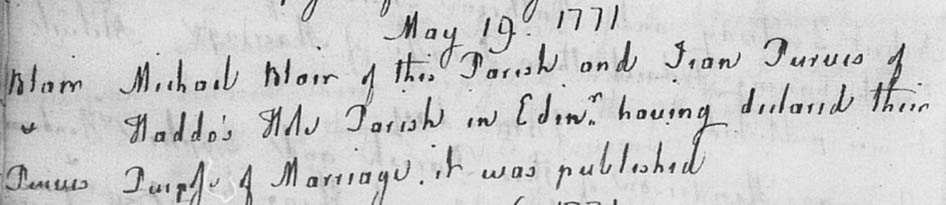 May 19. 1771
Blair Michael Blair of this Parish and Jean Purves of
& Haddo's Hole Parish in Edinr. having declared their
Purves Purpose of Marriage. it was published